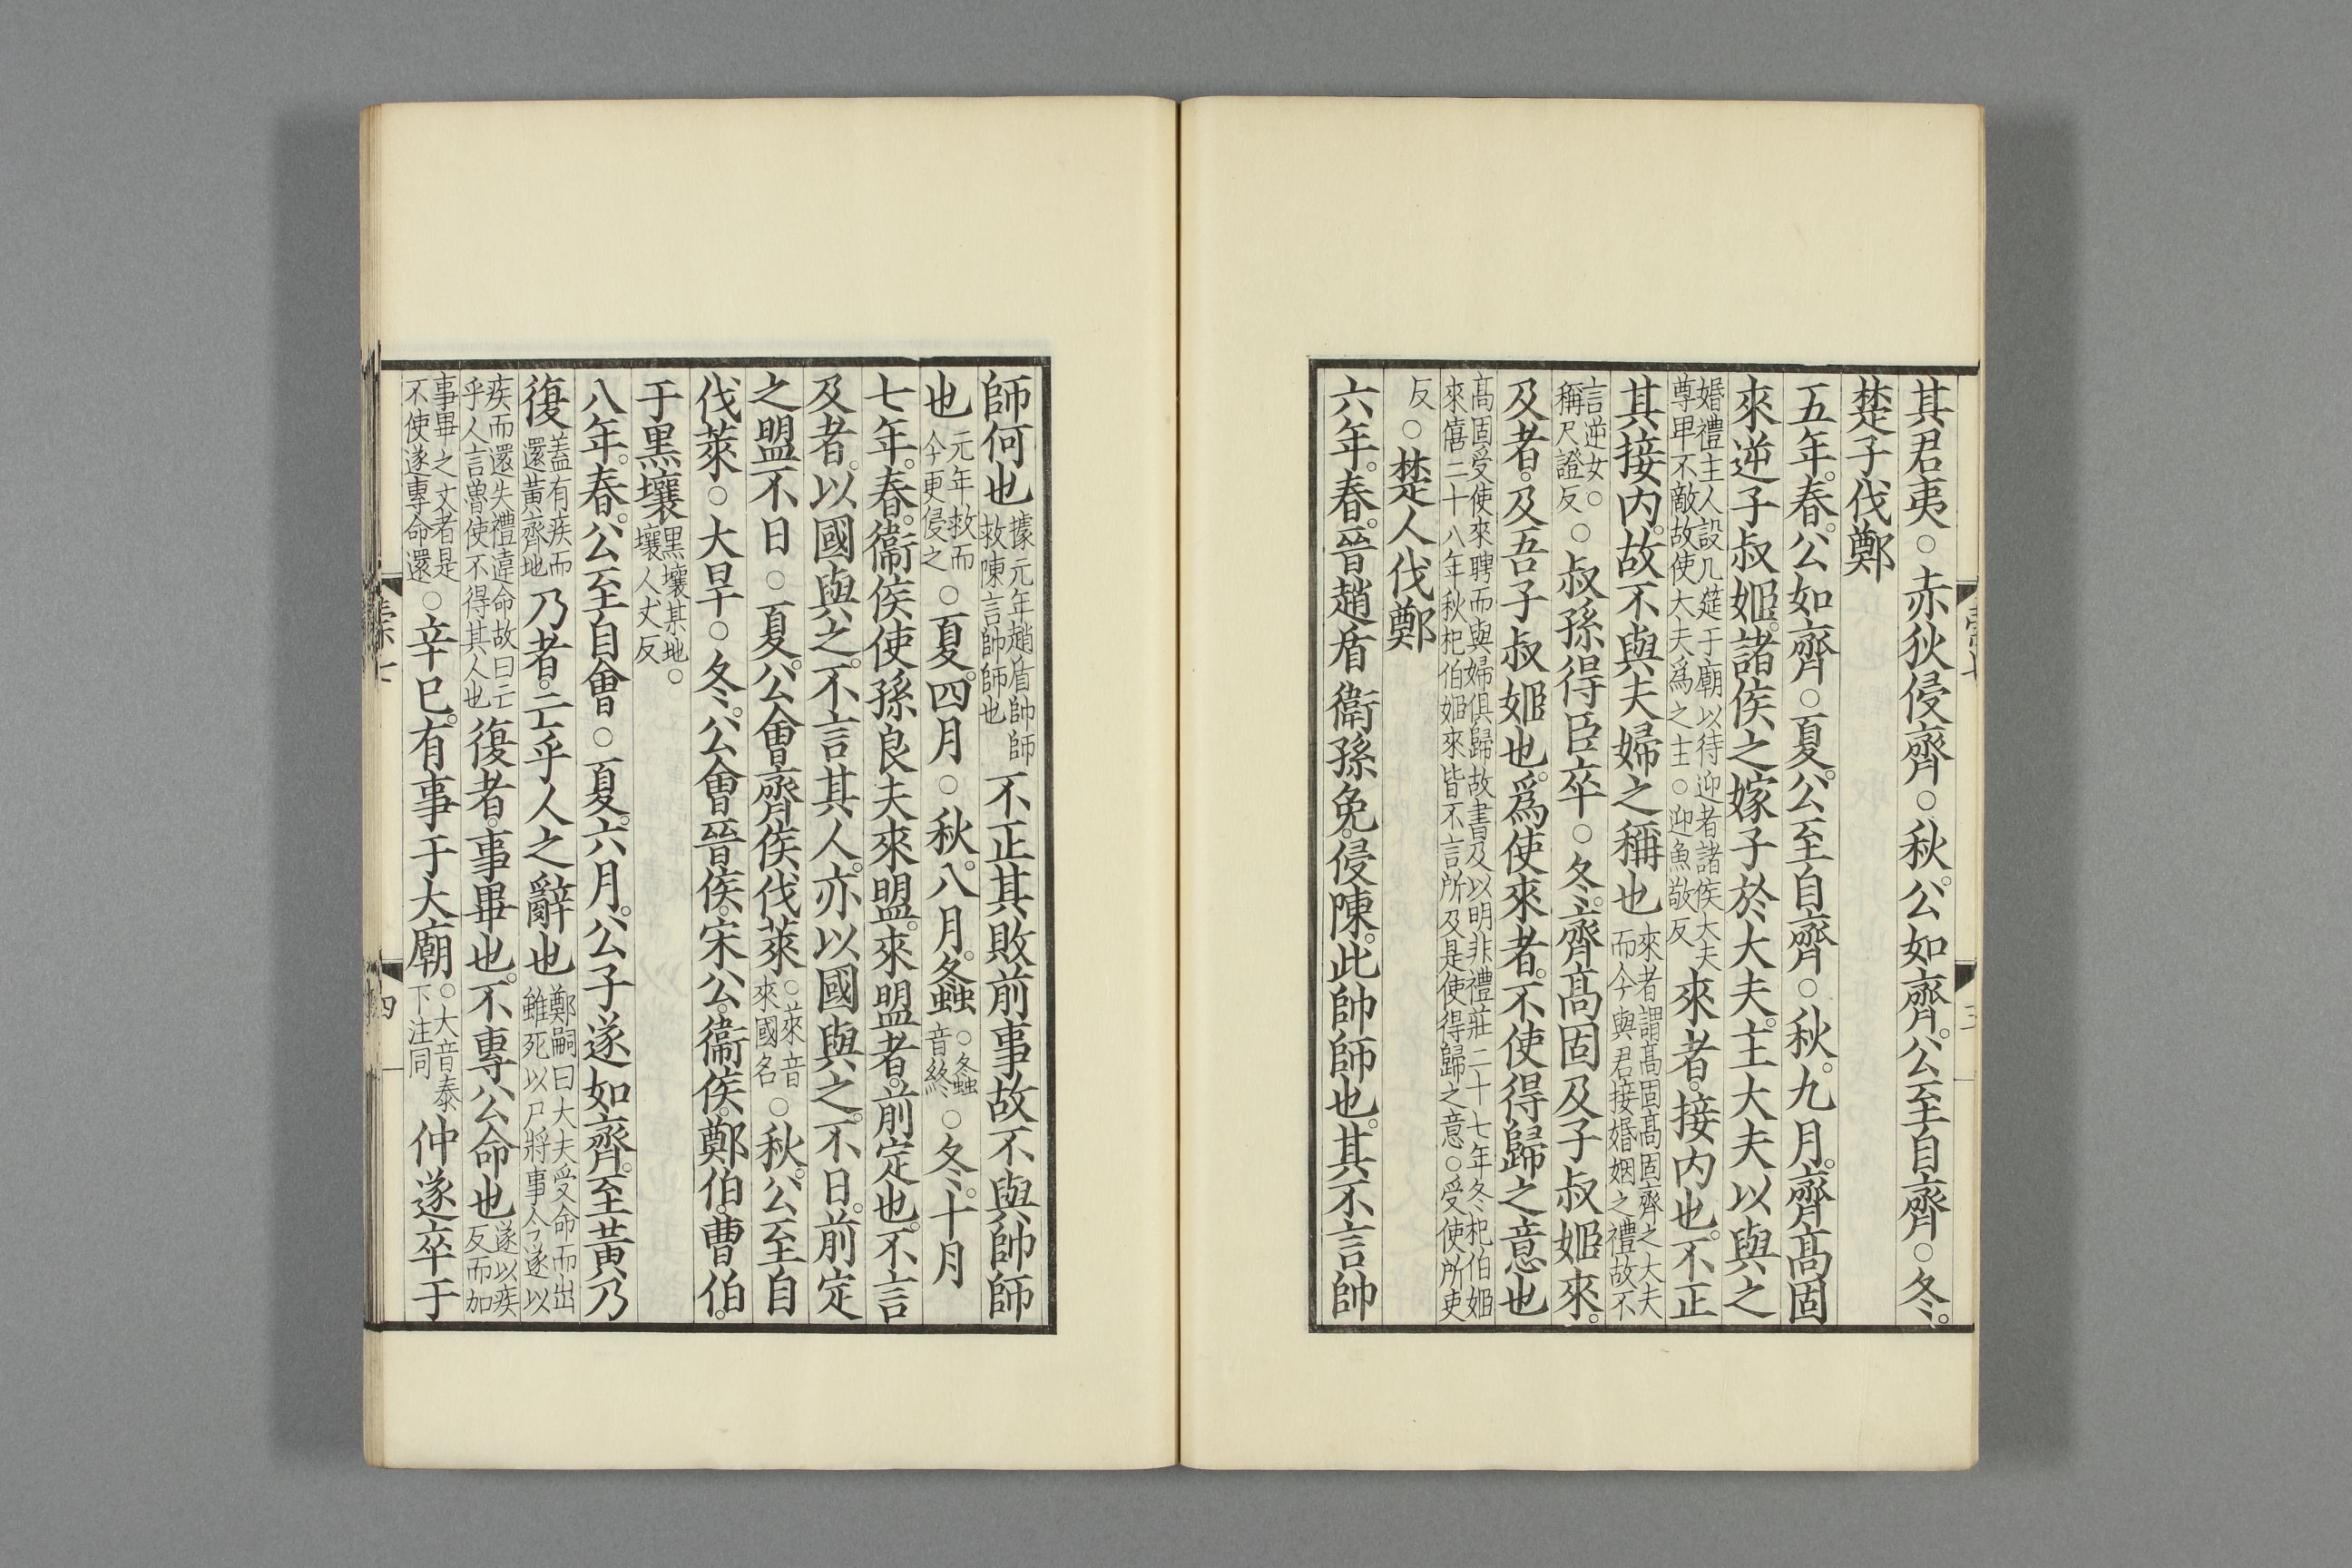 其君夷○赤狄侵齊○秋。公如齊。公至自齊○冬。
楚子伐鄭
五年。春。公如齊○夏。公至自齊○秋。九月。齊高固
來逆子叔姬。諸侯之嫁子於大夫。主大夫以與之
婚禮主人設几筵于廟以待迎者諸侯大夫
尊卑不敵故使大夫爲之主○迎魚敬反
來者。接內也。不正
其接內。故不與夫婦之稱也
來者謂高固高固齊之大夫
而今與君接婚姻之禮故不
言逆女○
稱尺證反
○叔孫得臣卒○冬。齊高固及子叔姬來。
及者。及吾子叔姬也。爲使來者。不使得歸之意也
高固受使來聘而與婦俱歸故書及以明非禮莊二十七年冬杞伯姬
來僖二十八年秋杞伯姬來皆不言所及是使得歸之意○受使所吏
反
○楚人伐鄭
六年。春。晉趙盾衛孫免。侵陳。此帥師也。其不言帥
師何也
據元年趙盾帥師
救陳言帥師也
不正其敗前事故不與帥師
也
元年救而
今更侵之
○夏。四月○秋。八月。螽
○螽
音終
○冬。十月
七年。春。衞侯使孫良夫來盟。來盟者。前定也。不言
及者。以國與之。不言其人。亦以國與之。不日。前定
之盟不日○夏。公會齊侯伐萊
○萊音
來國名
○秋。公至自
伐萊○大旱○冬。公會晉侯。宋公。衞侯。鄭伯。曹伯。
于黑壤
黑壤某地○
壤人丈反
八年。春。公至自會○夏。六月。公子遂如齊。至黃乃
復
蓋有疾而
還黃齊地
乃者。亡乎人之辭也
鄭嗣曰大夫受命而出
雖死以尸將事今遂以
疾而還失禮違命故曰亡
乎人言魯使不得其人也
復者。事畢也。不專公命也
遂以疾
反而加
事畢之文者是
不使遂專命還
○辛巳。有事于大廟
○大音泰
下注同
仲遂卒于
四